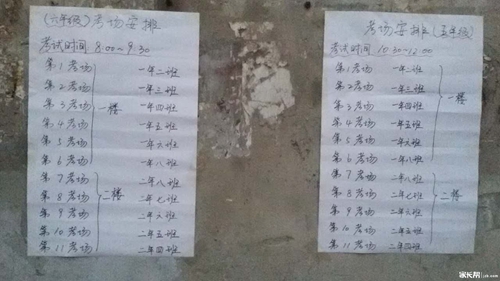 (六年级)考场安排
考试时间 8:00~9:30
第1考场 一年二班
第2考场 一年三班
第3考场 一年四班
第4考场 一年五班
第5考场 一年六班
第6考场 一年八班
一楼
第7考场 二年八班
第8考场 二年七班
第9考场 二年六班
第10考场 二年五班
第11考场 二年四班
二楼
考场安排(五年级)
考试时间 10:30-12:00
第1考场 一年二班
第2考场 一年三班
第3考场 一年四班
第4考场 一年五班
第5考场 一年六班
第6考场 一年八班
一楼
第7考场 二年八班
第8考场 二年七班
第9考场 二年六班
第10考场 二年五班
第11考场 二年四班
二楼
家长帮